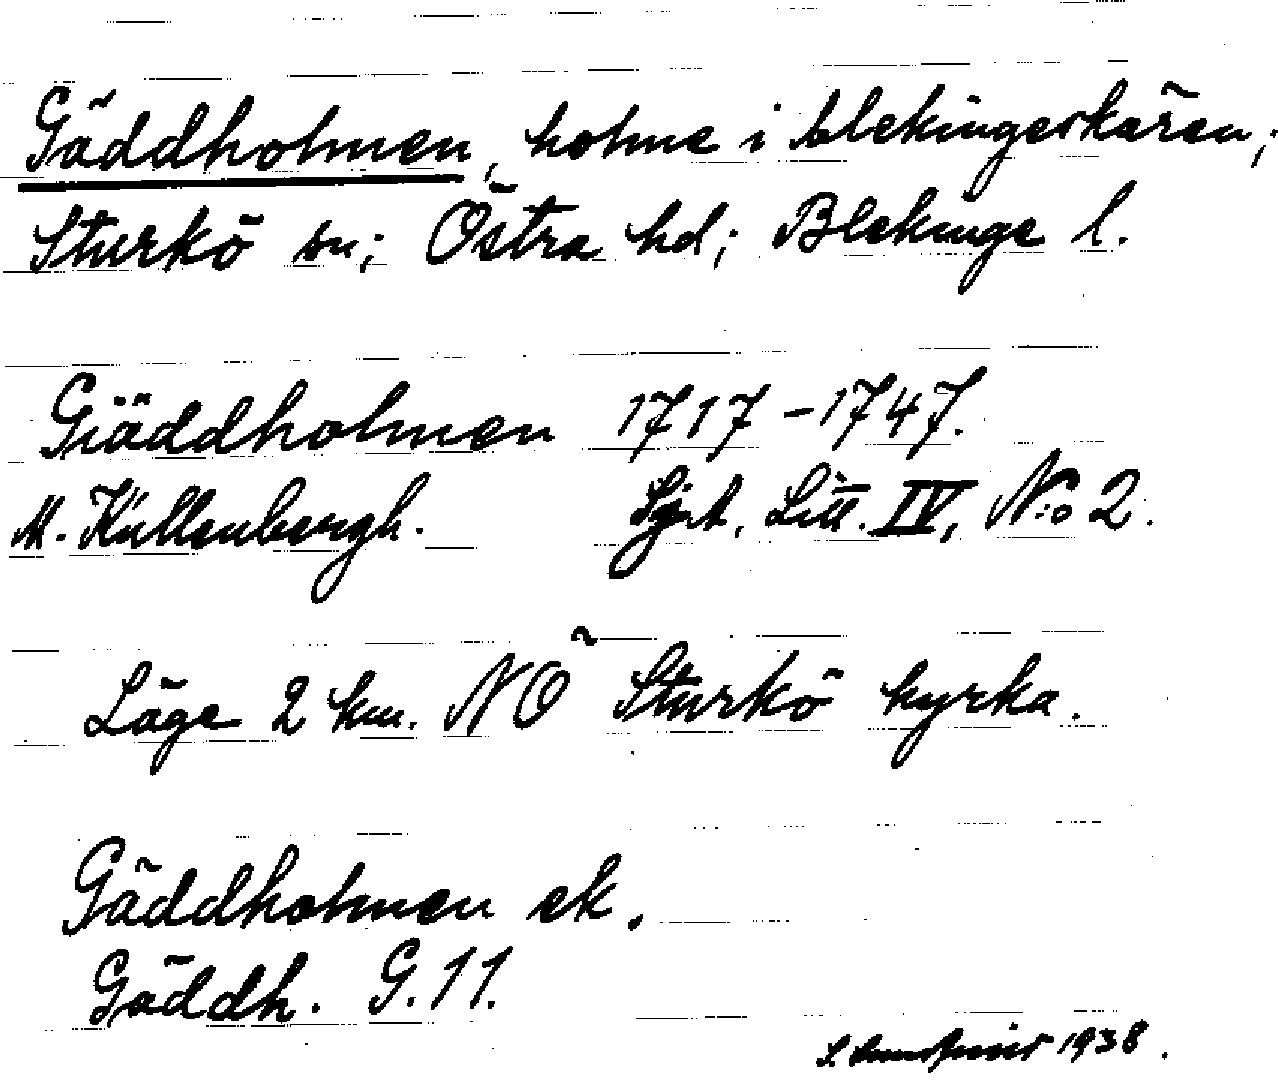 Gäddholmen, holme i blekingeskären;
Sturkö sn; Östra hd; Blekinge l.
Giäddholmen 1717-1747.
M. Kullenbergh. Sjrt. Litt. IV, N:o 2.
Läge 2 km. NO Sturkö kyrka.
Gäddholmen ek.
Gäddh. G. 11.
1938.